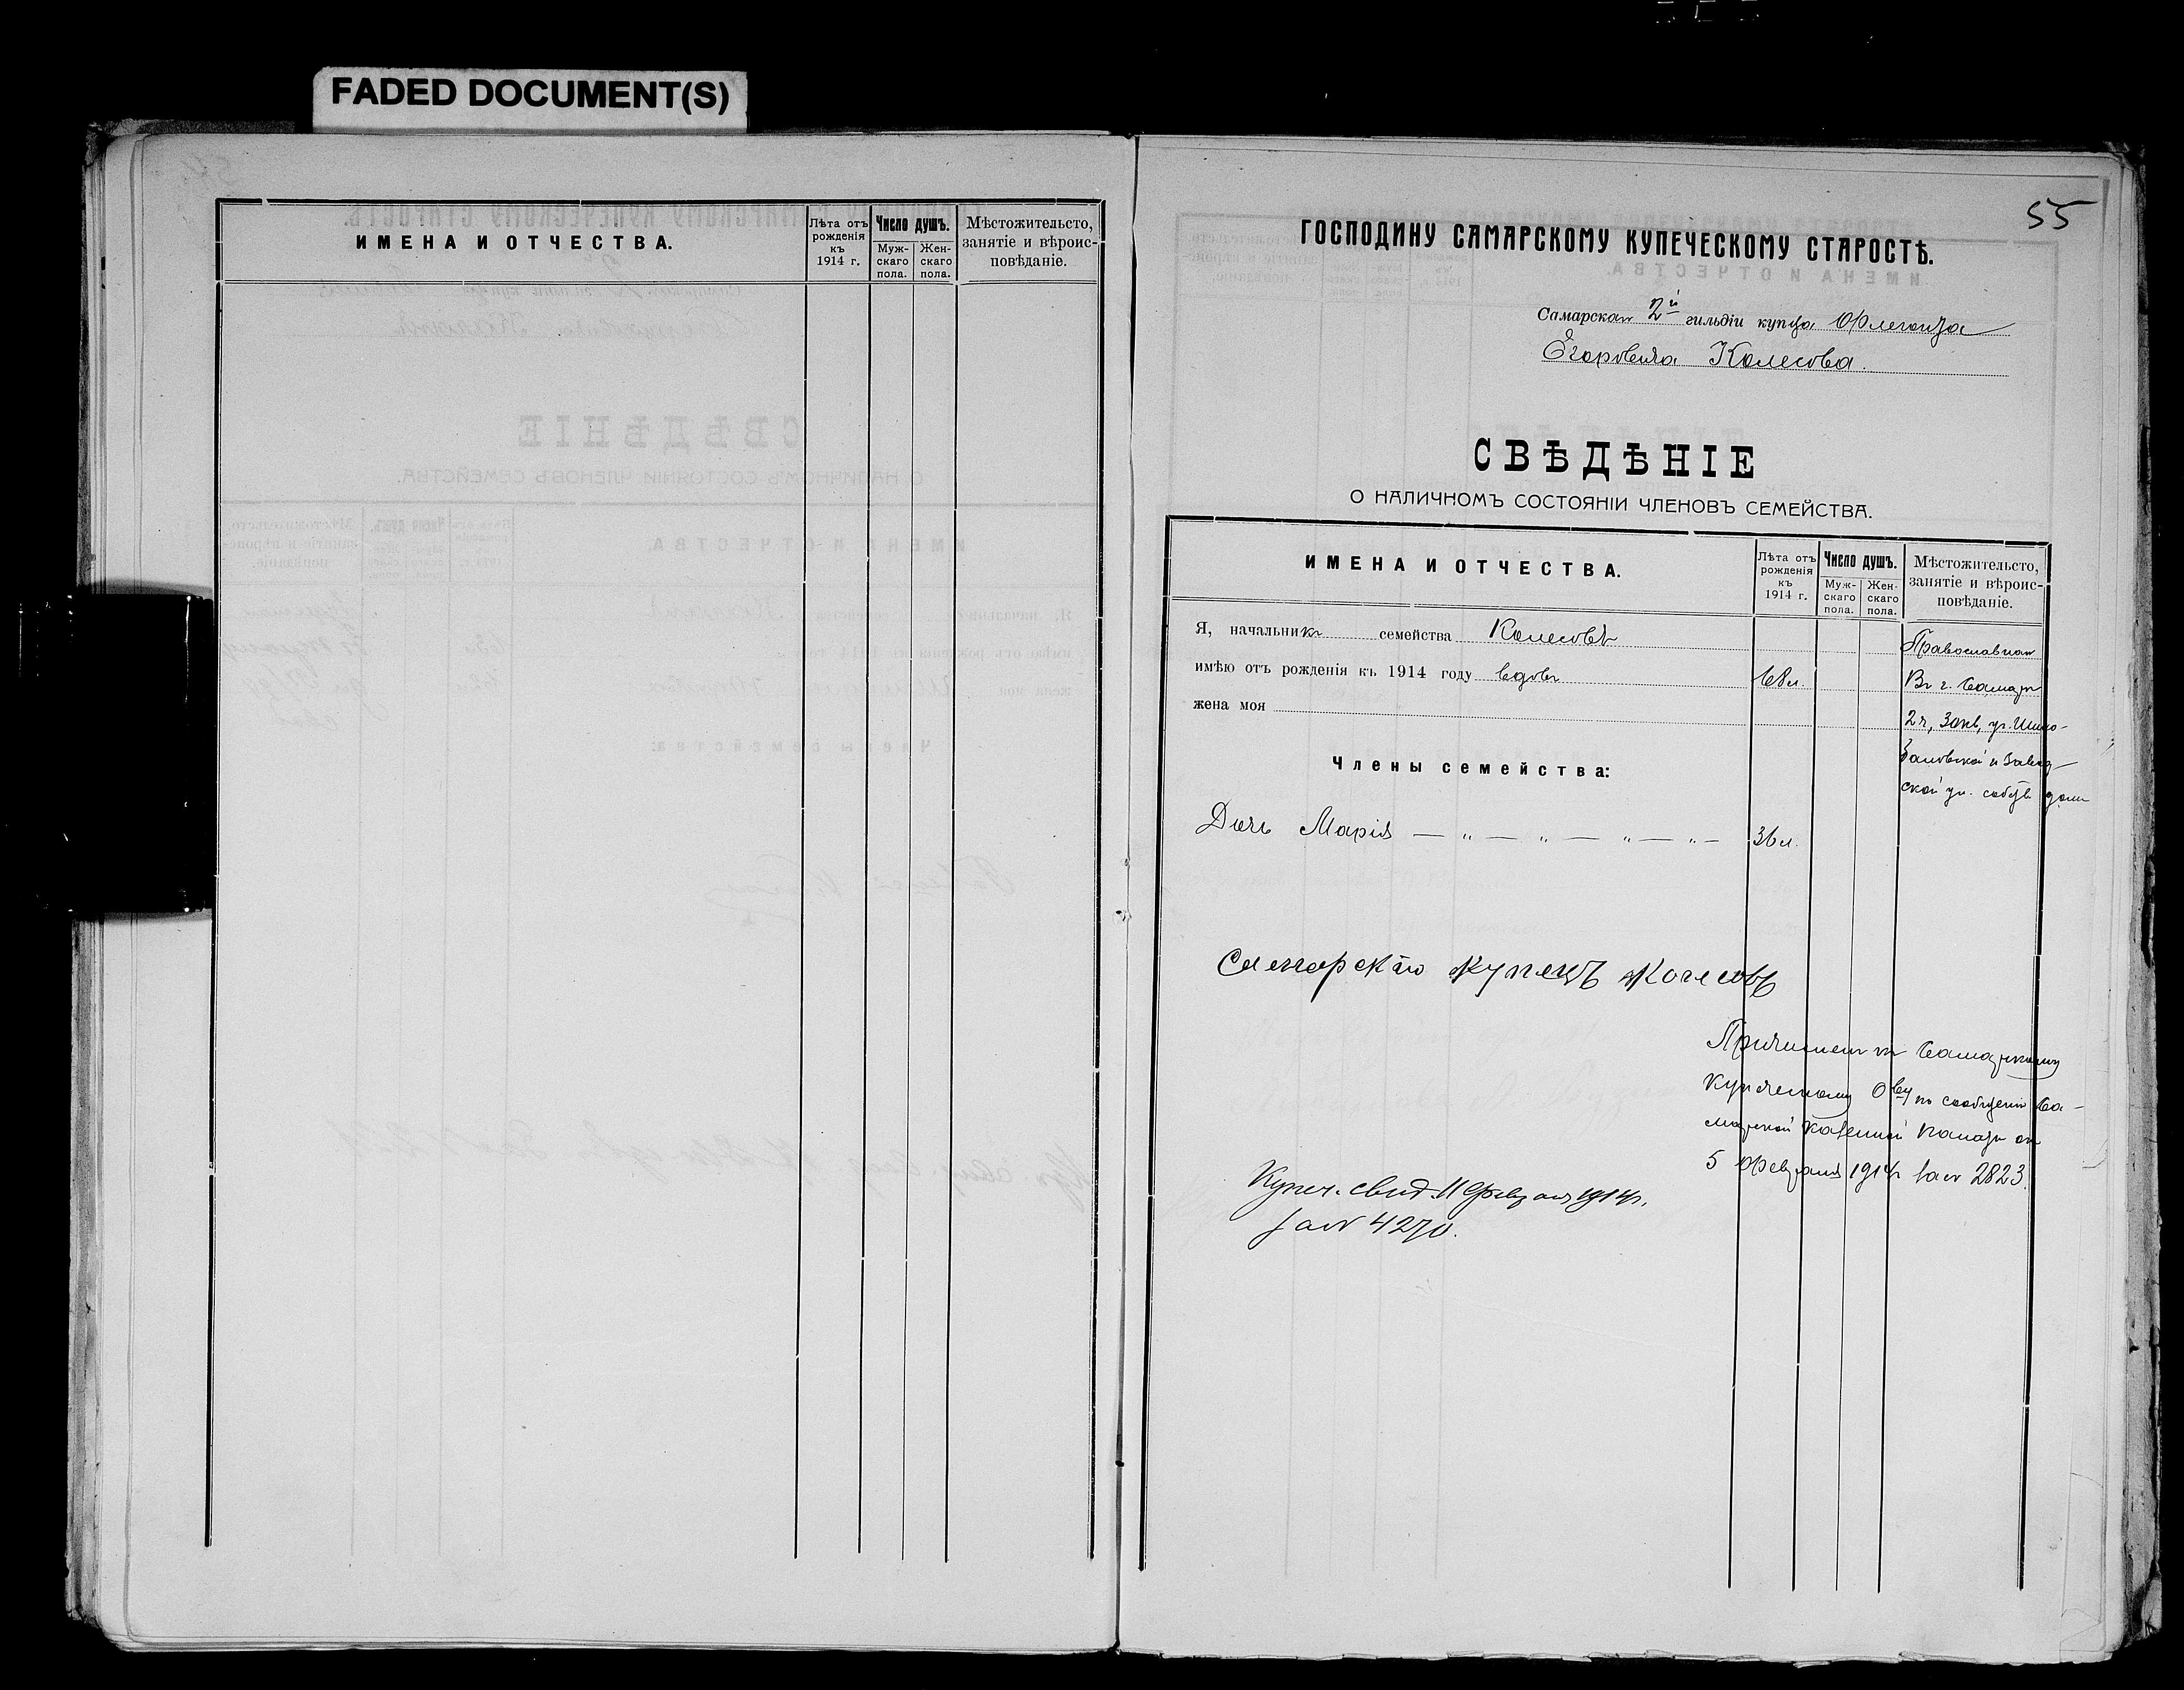 FADED DOCUMENT(S)
ИМЕНА И ОТЧЕСТВА.
Лѣта отъ рожденія къ 1914 г.
Число душъ.
Муж-скаго пола.
Жен-скаго пола.
Мѣстожительсто, занятіе и вѣроис-повѣданіе.
55
ГОСПОДИНУ САМАРСКОМУ КУПЕЧЕСКОМУ СТАРОСТѢ.
Самарскаго 2й гильдіи купца Флегонта
Егоровича Колесова.
СВѢДѢНІЕ
О НАЛИЧНОМЪ СОСТОЯНІИ ЧЛЕНОВЪ СЕМЕЙСТВА.
ИМЕНА И ОТЧЕСТВА.
Лѣта отъ рожденія къ 1914 г.
Число душъ.
Муж-скаго пола.
Жен-скаго пола.
Мѣстожительсто, занятіе и вѣроис-повѣданіе.
Я, начальникъ семейства Колесовъ
Православнаго
имѣю отъ рожденія къ 1914 году вдовъ 68 л.
Въ г. Самарѣ
жена моя
2 ч, 3 окв, уг.
и Завод-
ской ул. собств домъ
Члены семейства:
Дочь Марія — „ — „ — „ — „ — 36 л.
Самарскій купецъ Колесовъ
Причисленъ къ Самарскому
Купеческому Обву по сообщенію Са-
марской Казенной Палаты отъ
5 Февраля 1914 г за № 2823.
Купеч. свид. 11 Февраля 1914 г.
за № 4270.